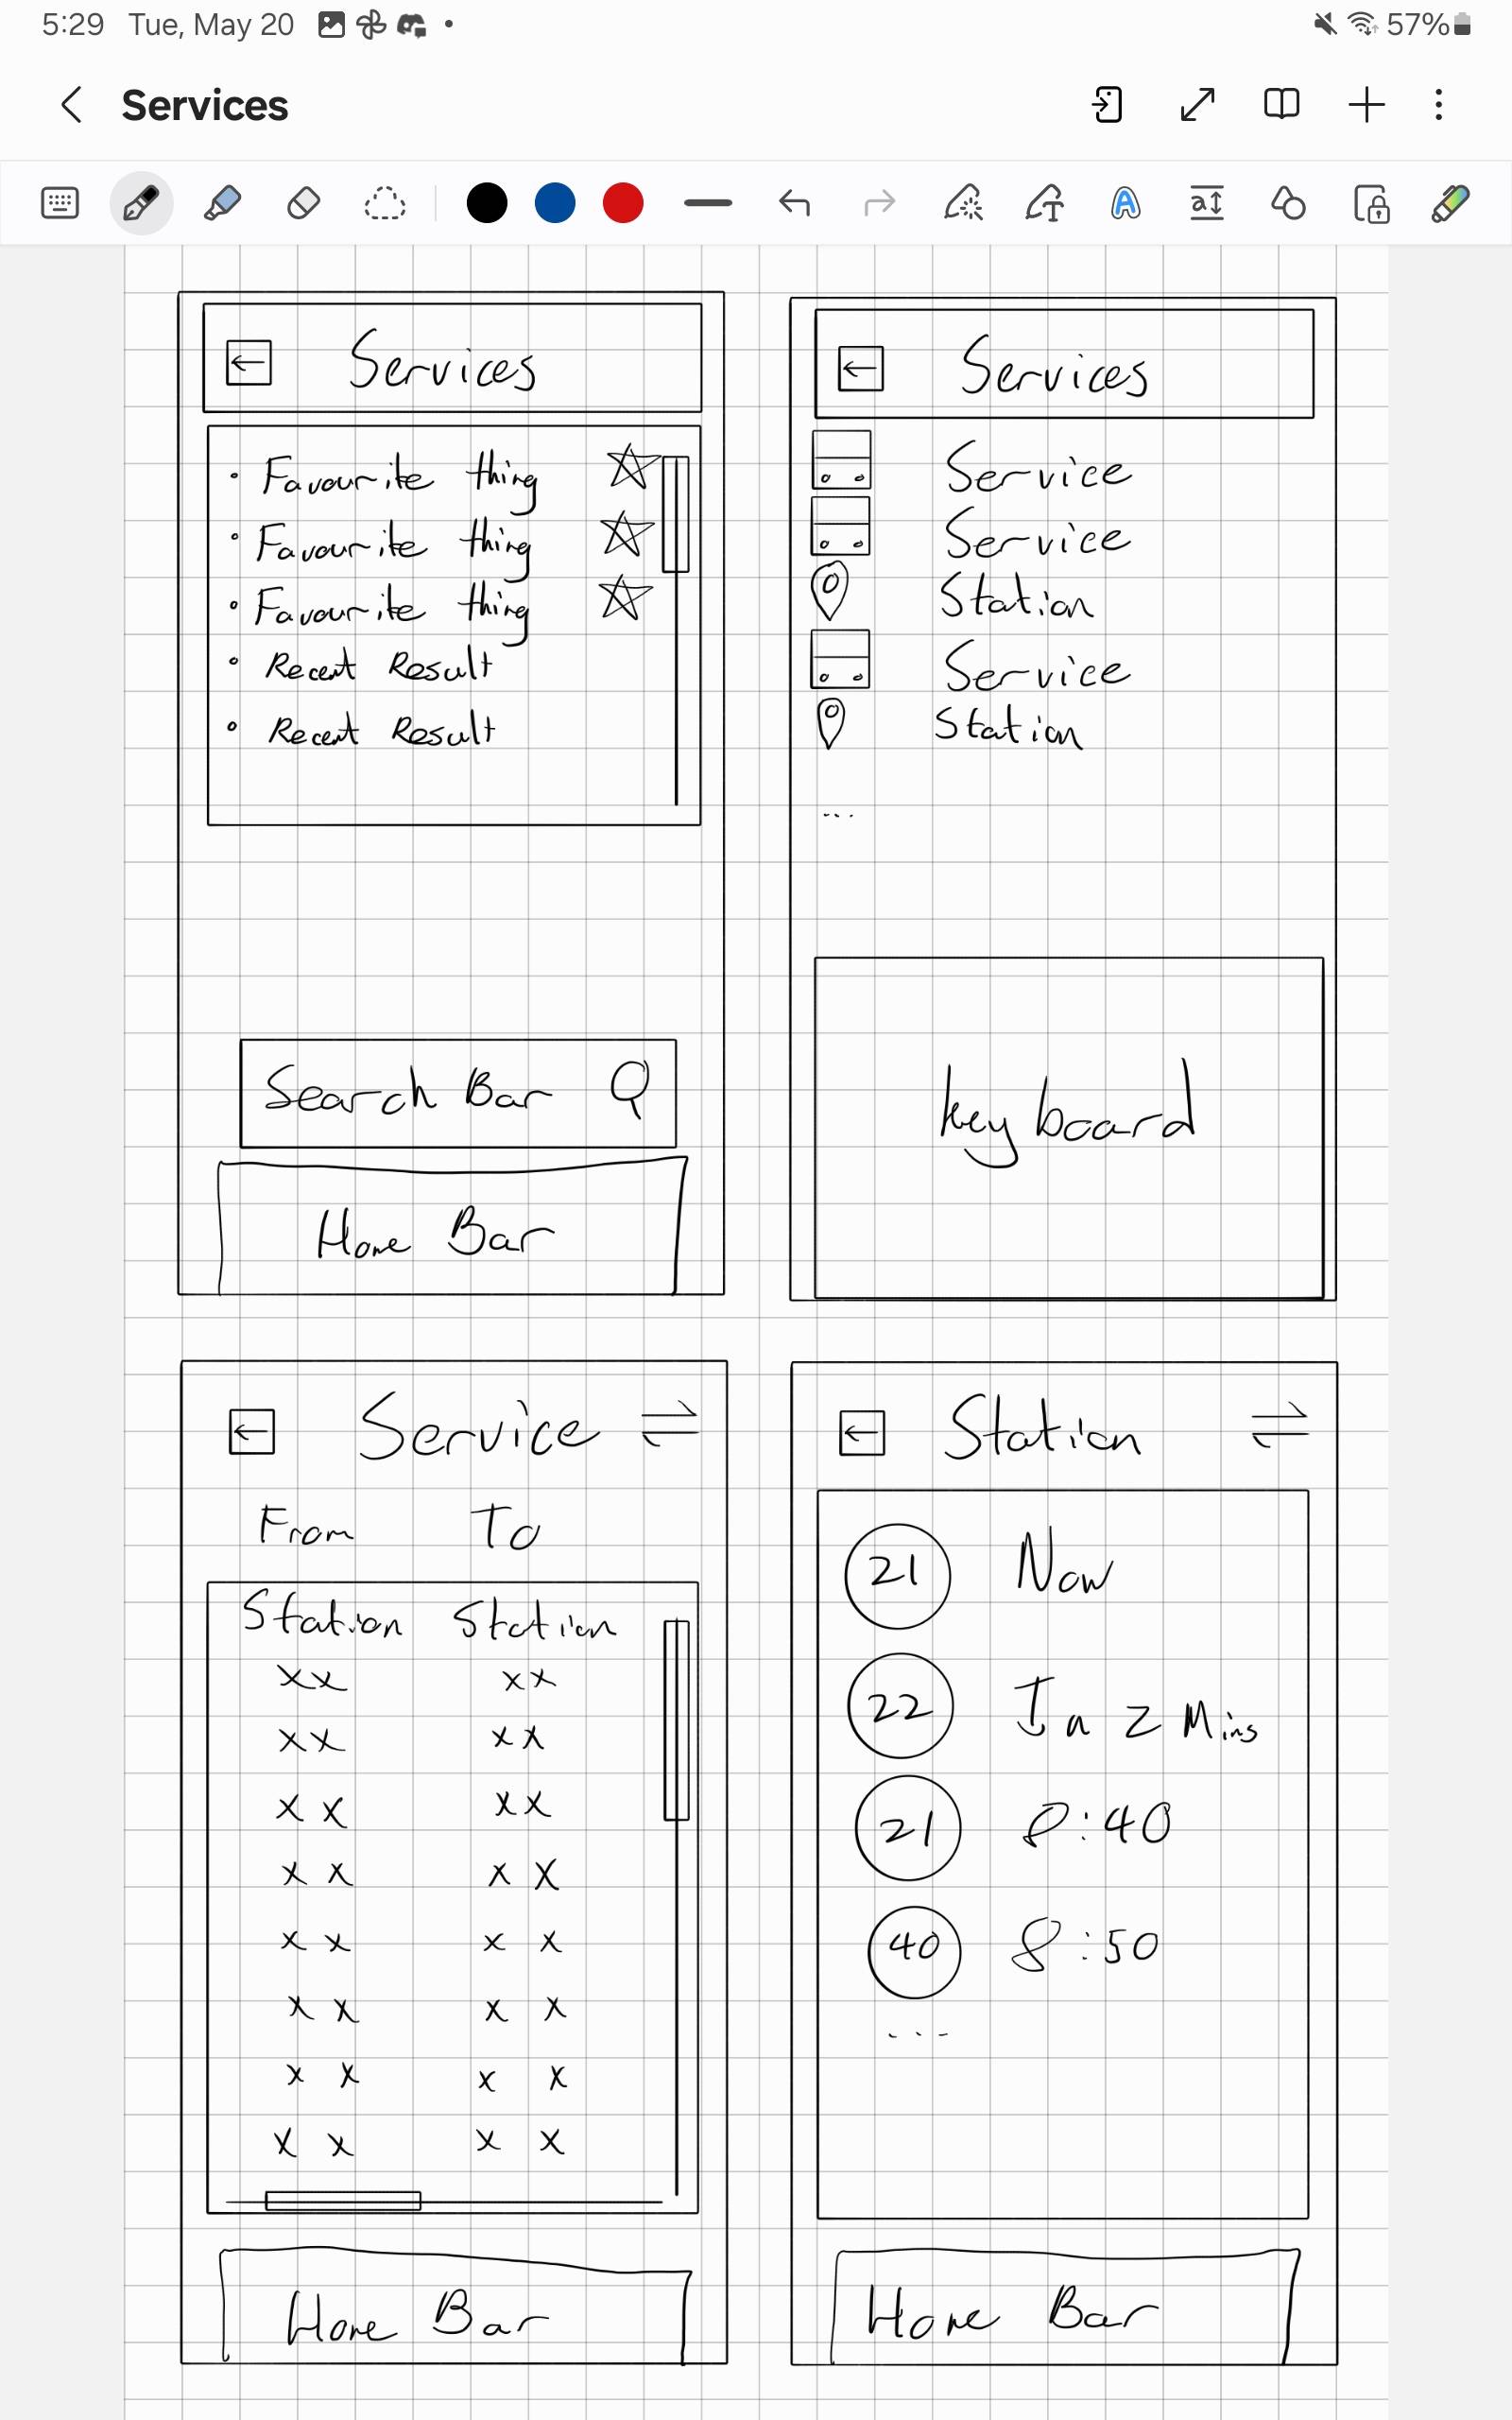 5:29 Tue, May 20
57%
Services
Services
Favourite thing
Favourite thing
Favourite thing
Recent Result
Recent Result
Search Bar
Home Bar
Services
Service
Service
Station
Service
Station
...
keyboard
Service
From To
Station Station
xx xx
xx xx
x x xx
x x x x
x x x x
x x x x
x x x x
x x x x
Home Bar
Station
21 Now
22 In 2 Mins
21 8:40
40 8:50
...
Home Bar